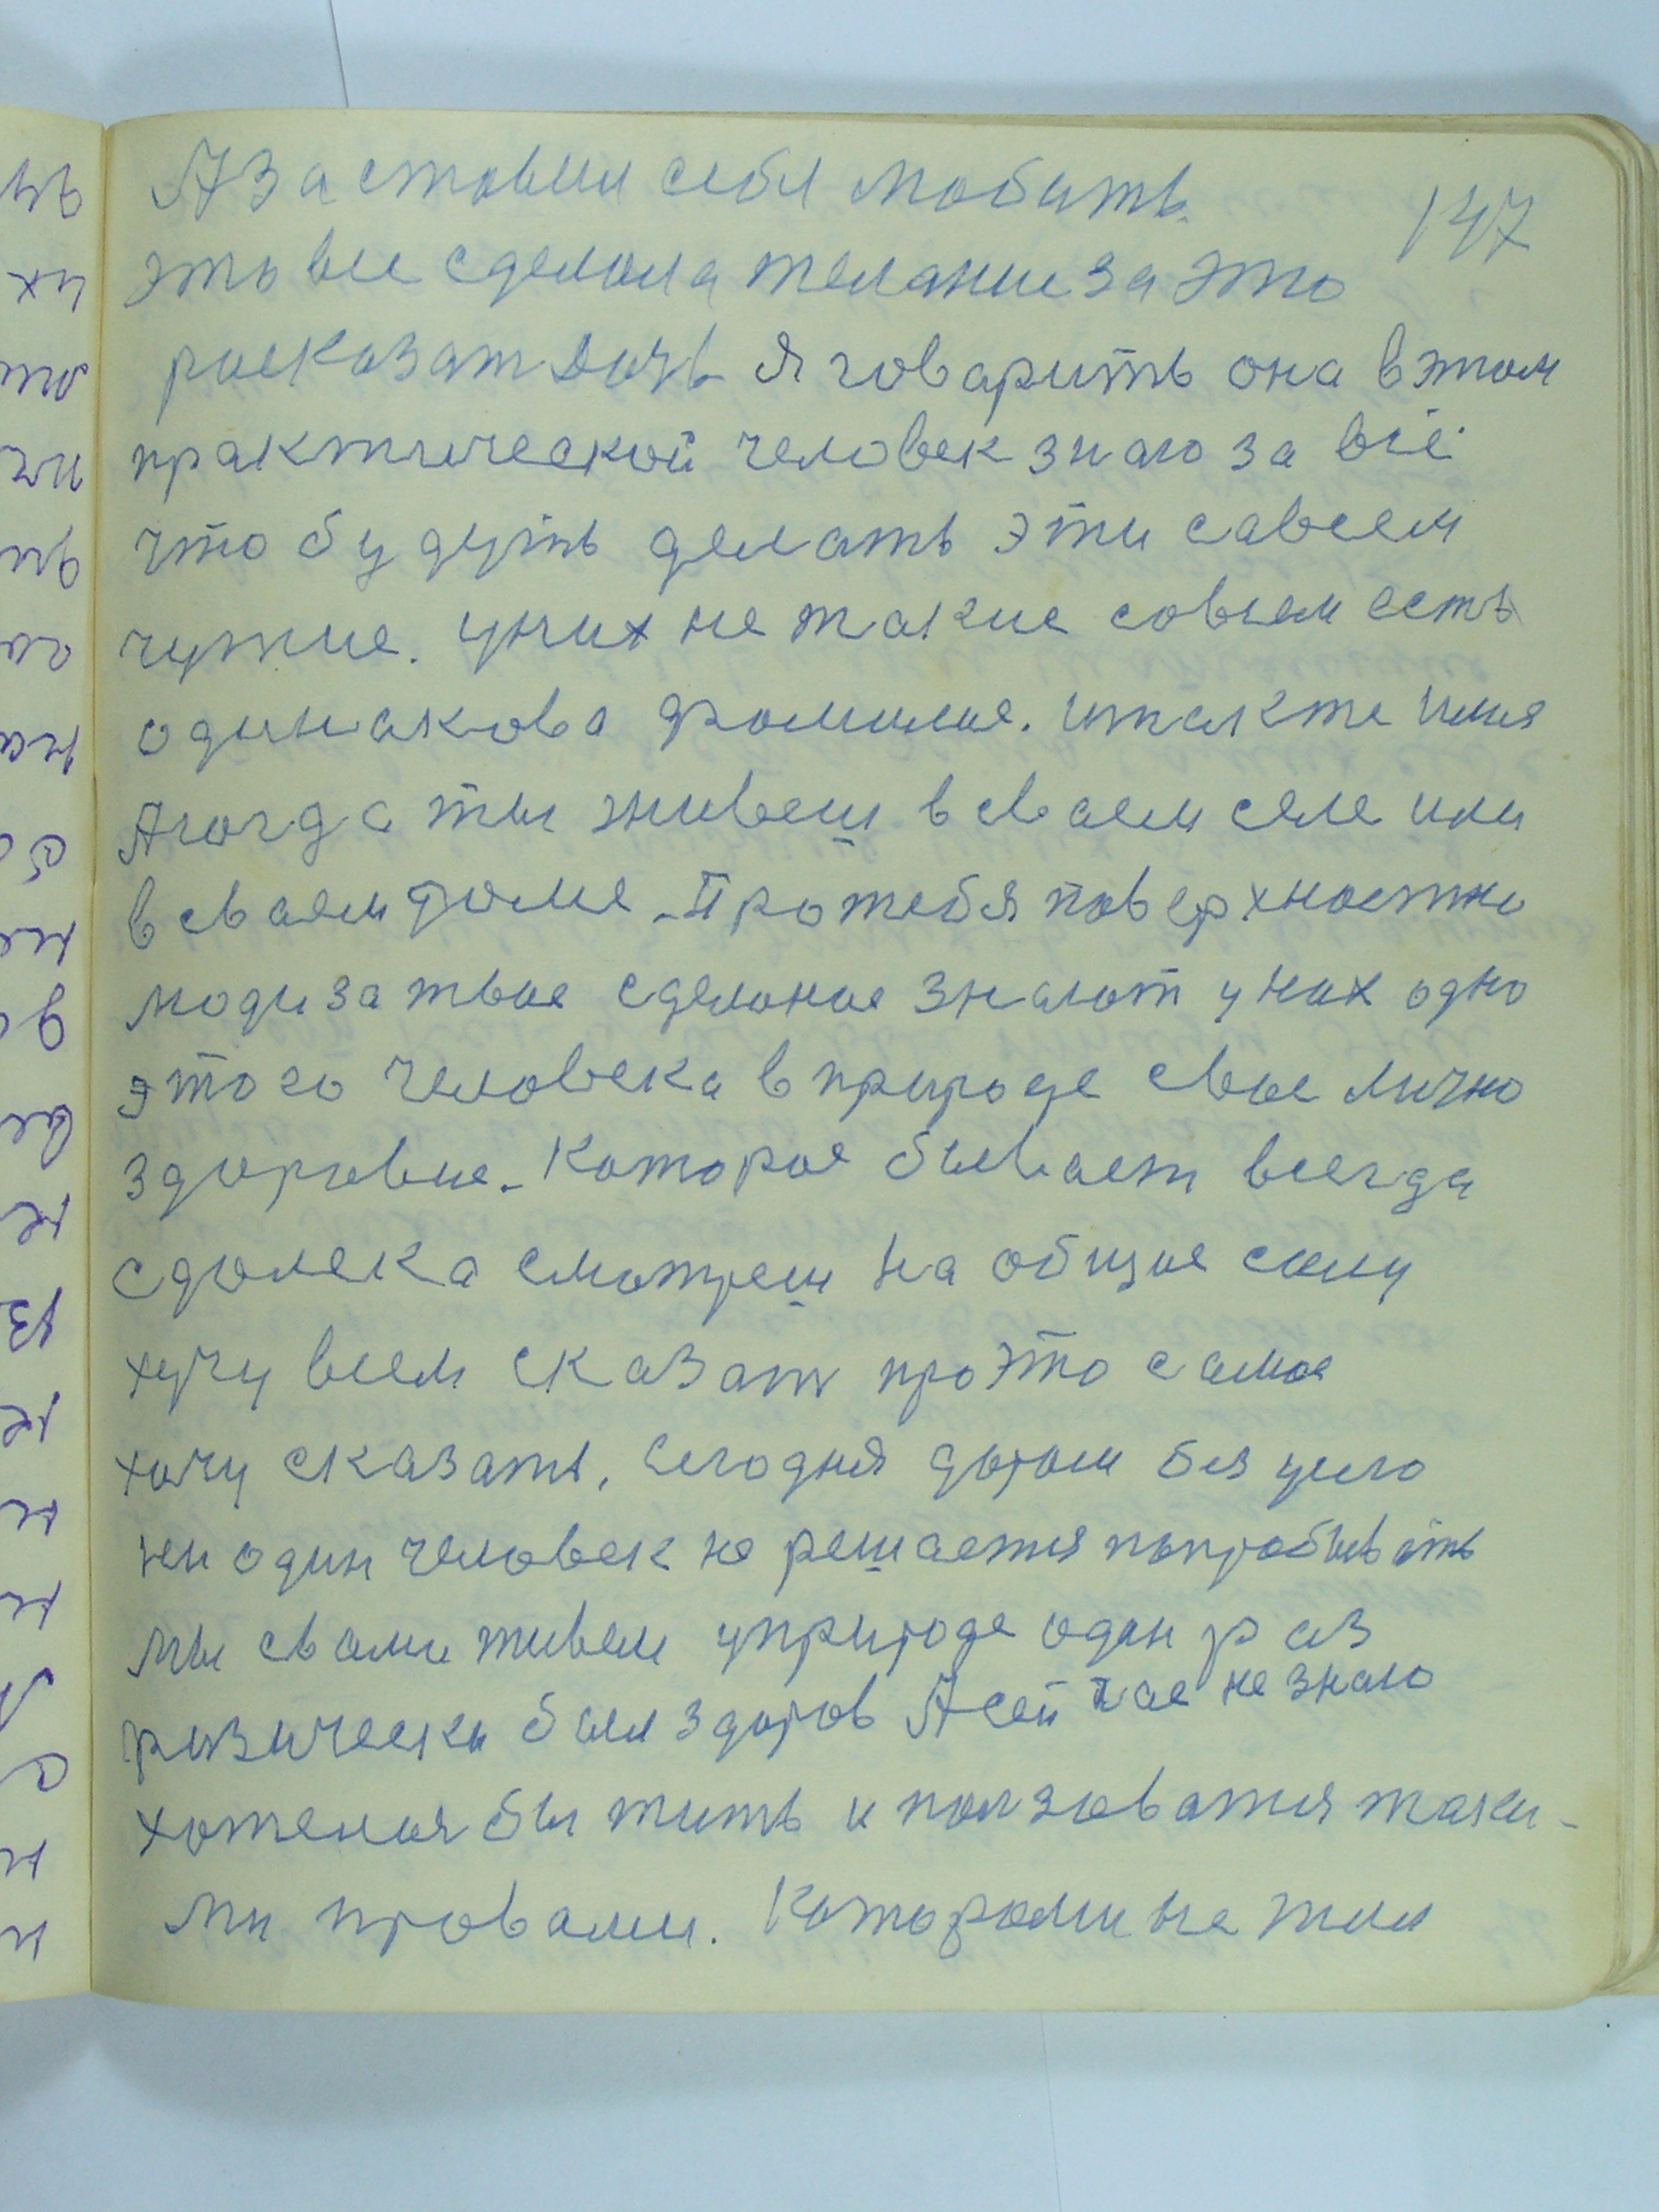 147
А заставил себя любить
это все сделала желание за это
расказат дочь я говарить она в этом
практической человек знаю за всё
что будуть делать эти савсем
чужие. у них не такие совсем есть
одинакова фамилия. и также имя
А когда ты живеш в сваем селе или
в сваем доме. Про тебя поверхностно
люди за твое сделоное знают у них одно
этого человека в природе свое лично
здоровие. Которое бывает всегда
сдолека смотреш на общие силы
хочу всем сказат про это самое
хочу сказать. Сегодня даром без
ни один человек не решается попробывать
мы с вами живем у природе один раз
физически был здоров А сейчас не знаю
хотелоя бы жить и ползоватия таки-
ми правами. Которами не жил